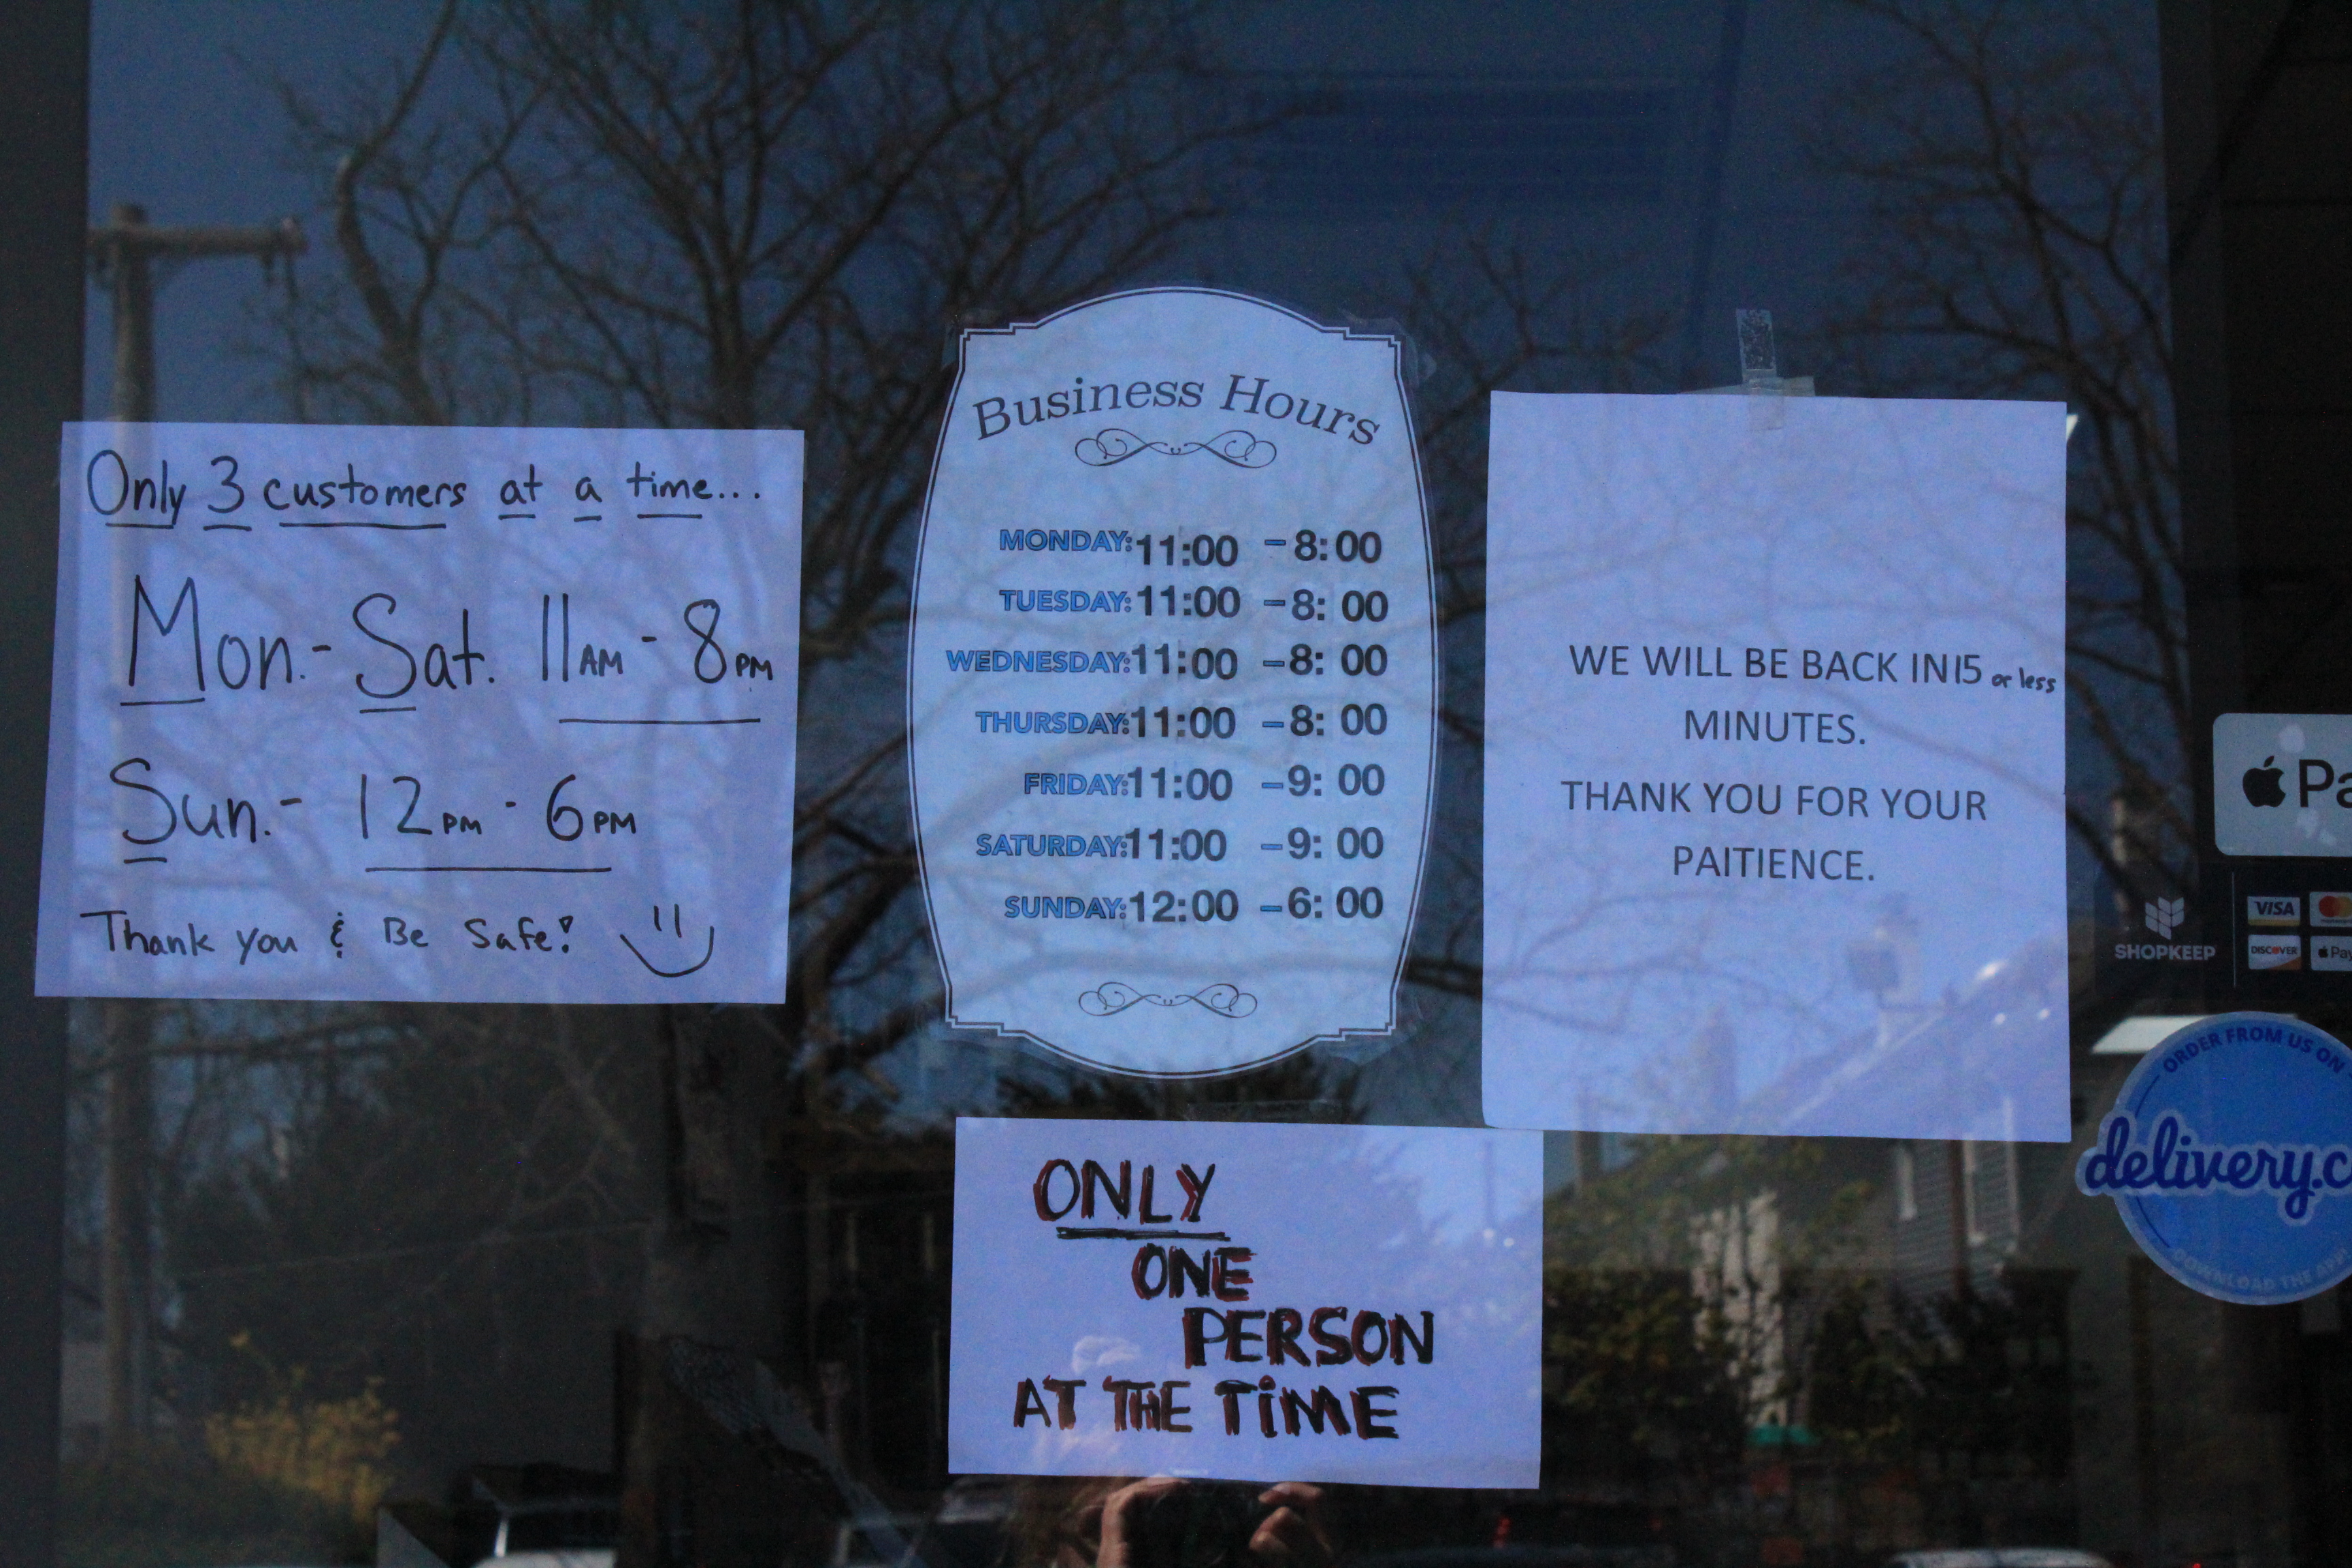 Only 3 customers at a time...
Mon.- Sat. 11AM - 8PM
Sun.- 12PM - 6PM
Thank you & Be Safe!
Business Hours
MONDAY: 11:00 - 8:00
TUESDAY: 11:00 - 8:00
WEDNESDAY: 11:00 - 8:00
THURSDAY: 11:00 - 8:00
FRIDAY: 11:00 - 9:00
SATURDAY: 11:00 - 9:00
SUNDAY: 12:00 - 6:00
WE WILL BE BACK IN 15 or less
MINUTES.
THANK YOU FOR YOUR
PAITIENCE.
ONLY
ONE
PERSON
AT THE TiME
Pa
SHOPKEEP
VISA
DISCOVER
Pay
ORDER FROM US ON
delivery.c
DOWNLOAD THE APP